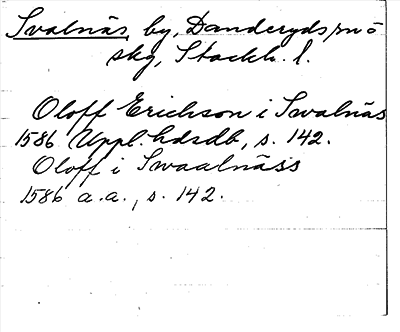 Svalnäs, by, Danderyds sn o
skg, Stockh. l.
Oloff Erichson i Swalnäs
1586 Uppl. hdsdb, s. 142.
Oloff i Swaalnäss
1586 a.a., s. 142.